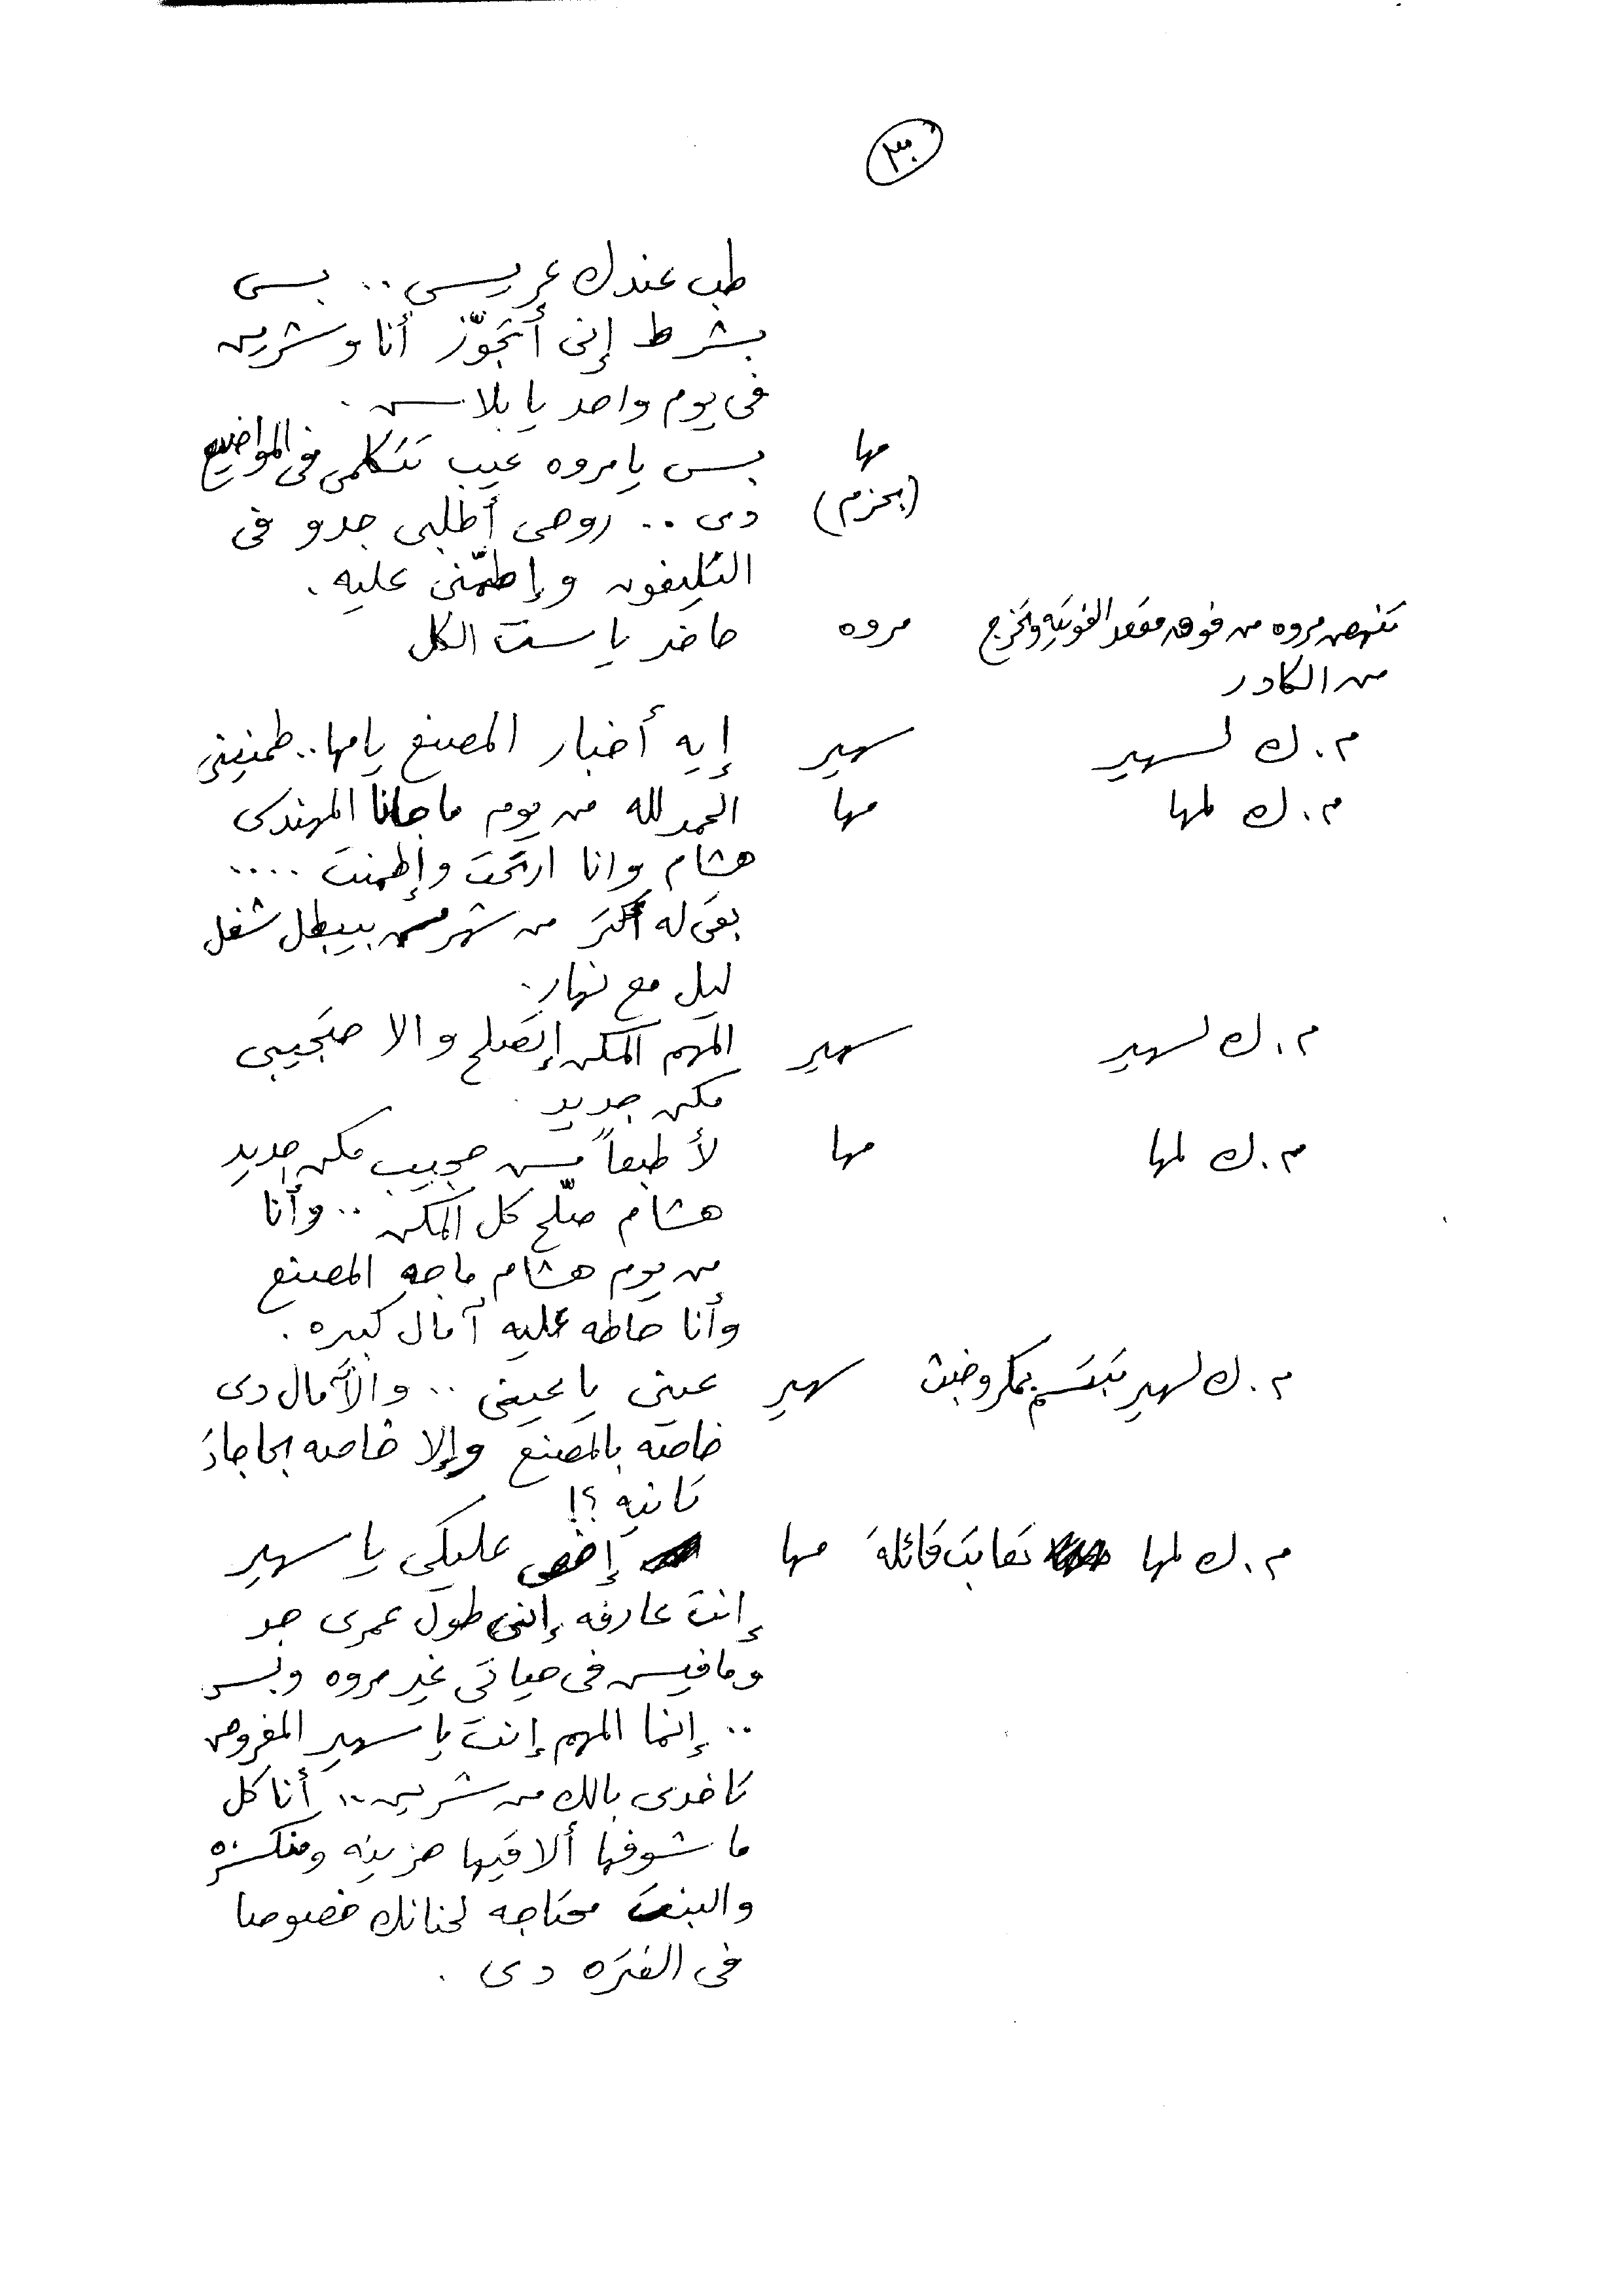 ٣٠
طب عندك عريس .. بس
بشرط إنى أتجوّز أنا وشرين
فى يوم واحد يا بلاش .
مها بس يا مروه عيب تتكلمى فى المواضيع
(بحزم) دى .. روحى أطلبى جدو فى
التليفون وإطمّنى عليه .
تنهض مروه من فوق مقعد الفوتيه وتخرج مروه حاضر يا ست الكل
من الكادر
م . ك لسهير سهير إيه أخبار المصنع يا مها .. طمنينى
م . ك لمها مها الحمد لله من يوم ما جانا المهندس
هشام وانا ارتحت وإطمنت ....
بقى له أكتر من شهر مس بيبطل شغل
ليل مع نهار .
م . ك لسهير سهير المهم المكن إتصلح والا حتجيبى
مكن جديد .
م . ك لمها مها لأ طبعاً مس حجيب مكن جديد
هشام صلّح كل المكن .. وأنا
من يوم هشام ما جه المصنع
وأنا حاطه عليه آمال كبيره .
م . ك لسهير تبتسم بمكر وخبث سهير عينى يا عينى .. والآمال دى
خاصه بالمصنع وإلا خاصه بحاجات
تانيه ؟!
م . ك لمها تعاتب قائلة مها إخص عليكى يا سهير
إنت عارفه إنى طول عمرى جد
ومافيس فى حياتى غير مروه وبس
.. إنما المهم إنت يا سهير المفروض
تاخدى بالك من شرين .. أنا كل
ما شوفها ألاقيها حزينه ومنكسره
والبنت محتاجه لحنانك خصوصا
فى الفتره دى .